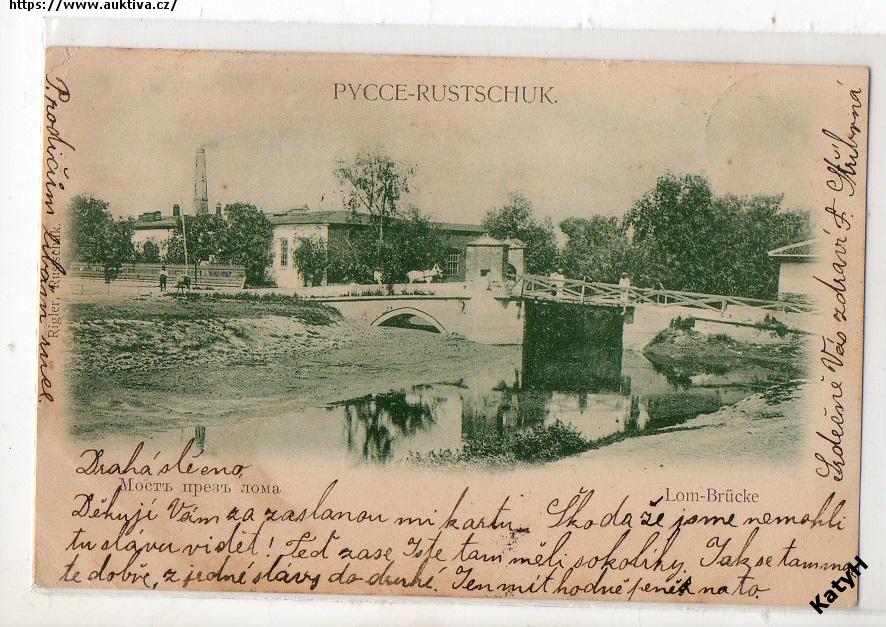 https://www.auktiva.cz/
РУССЕ-RUSTSCHUK.
P. rodičům líbám
Rigler, Rustschuk.
Мостъ презъ лома
Lom-Brücke
Drahá slečno,
Děkuji Vám za zaslanou mi kartu. Škoda že jsme nemohli
tu slávu vidět! Teď zase Jste tam měli sokolíky. Jak se tam má
te dobře, z jedné slávy do druhé. Jen mít hodně peněz na to.
Srdečně Vás zdraví F. Stříbrná
KatyH